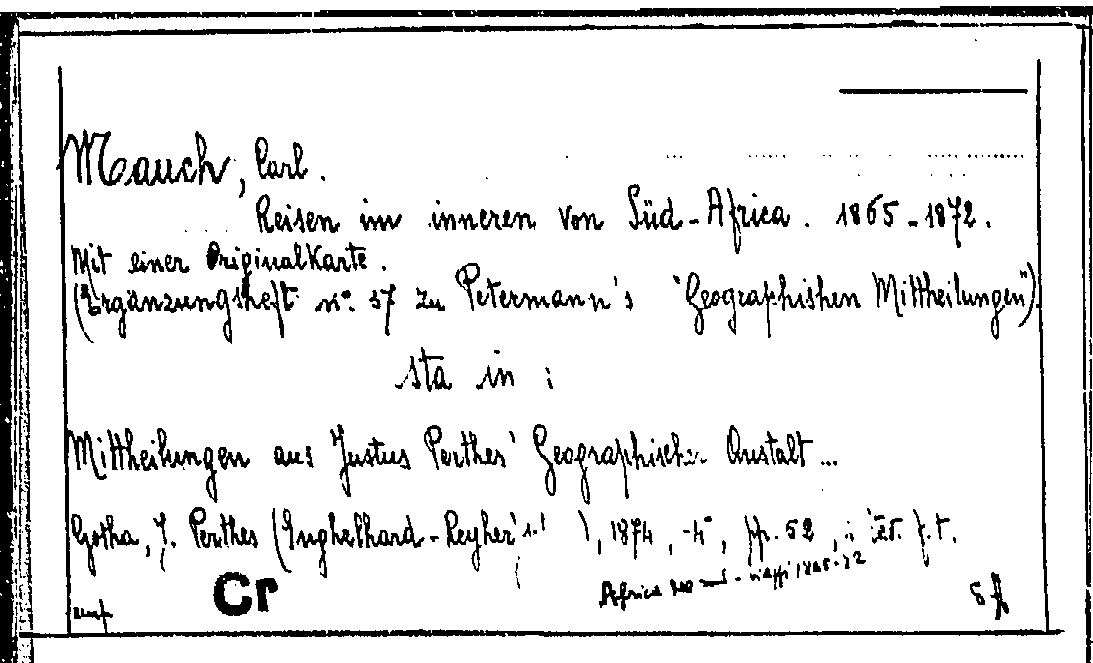 Mauch, Carl.
Reisen im inneren von Süd-Africa. 1865-1872.
Mit einer Originalkarte.
(Ergänzungsheft n°. 37 zu Petermann's "Geographishen Mittheilungen").
sta in :
Mittheilungen aus Justus Perthes' Geographischer Anstalt...
Gotha, J. Perthes (Enghelhard-Reyher's.' ), 1874, -4°, pp. 52, f. t.
Africa - viaggi 1865-72
Cr